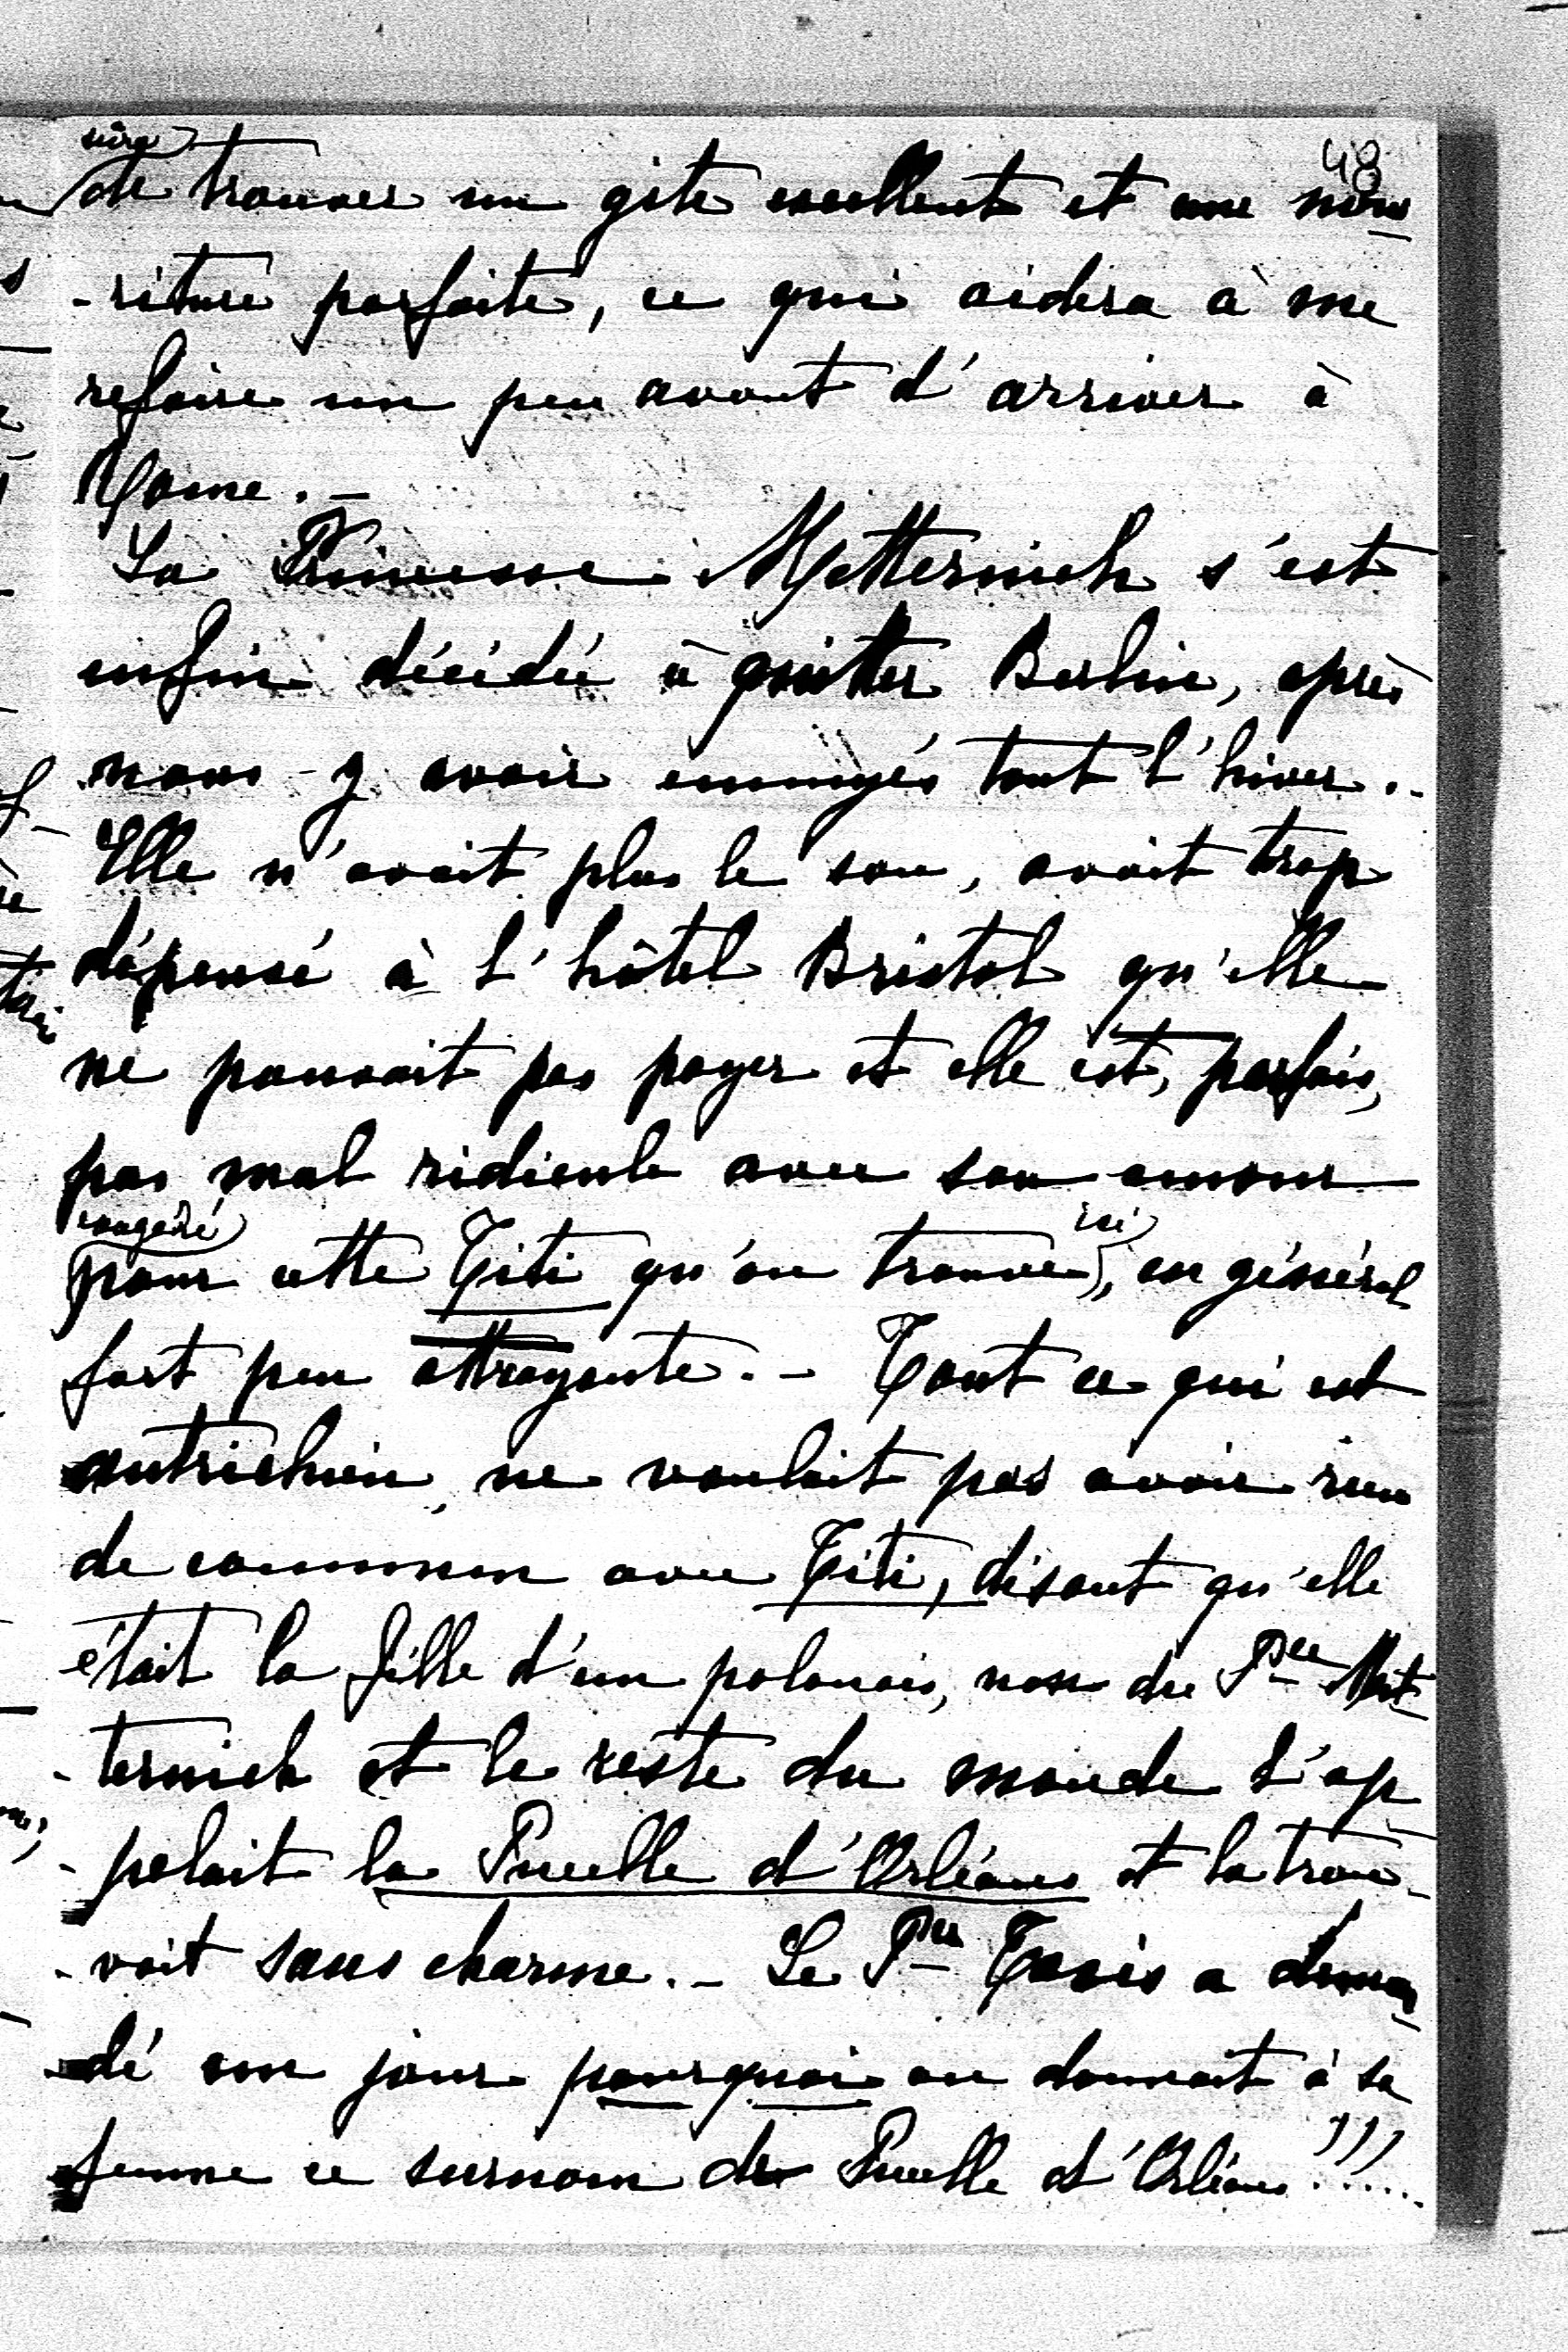 48
sûre
de trouver un gite excellent et une nour
-riture parfaite, ce qui aidera à me
refaire un peu avant d'arriver à
Rome. -
La Princesse Metternich s'est
enfin décidée à quitter Berlin, après
nous y avoir ennuyés tout l'hiver. -
Elle n'avait plus le sou, avait trop
dépensé à l'hôtel Bristol qu'elle
ne pouvait pas payer et elle est, parfois,
pas mal ridicule avec son amour
exagéré ici
pour cette Titi qu'on trouve, en général
fort peu attrayante. - Tout ce qui est
autrichien, ne voulait pas avoir rien
de commun avec Titi, disant qu'elle
était la fille d'un polonais, non du Pce Met
-ternich et le reste du monde l'ap
-pelait la Pucelle d'Orléans et la trou-
-vait sans charme. - Le Pce Taxis a deman
-dé un jour pourquoi on donnait à sa
femme ce surnom de Pucelle d'Orléans!!!...